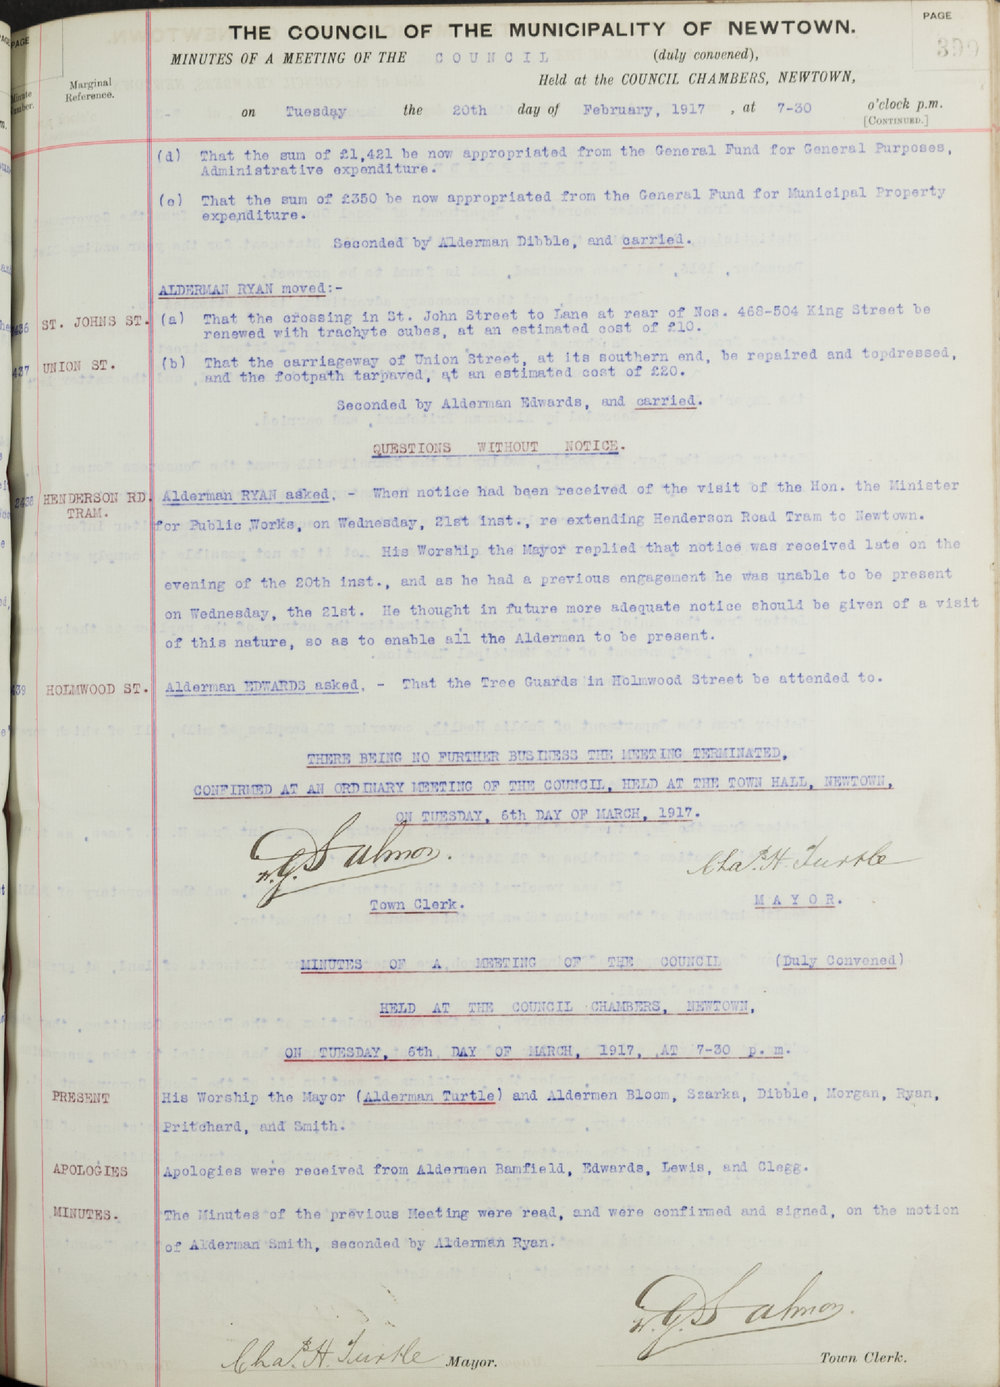 PAGE
THE COUNCIL OF THE MUNICIPALITY OF NEWTOWN.
399
MINUTES OF A MEETING OF THE COUNCIL (duly convened),
Marginal Reference.
Held at the COUNCIL CHAMBERS, NEWTOWN,
on Tuesday the 20th day of February, 1917, at 7-30 o'clock p.m.
[CONTINUED.]
(d) That the sum of £1,421 be now appropriated from the General Fund for General Purposes,
Administrative expenditure.
(e) That the sum of £350 be now appropriated from the General Fund for Municipal Property
expenditure.
Seconded by Alderman Dibble, and carried.
ALDERMAN RYAN moved:-
ST. JOHNS ST. (a) That the crossing in St. John Street to Lane at rear of Nos. 468-504 King Street be
renewed with trachyte cubes, at an estimated cost of £10.
UNION ST. (b) That the carriageway of Union Street, at its southern end, be repaired and topdressed,
and the footpath tarpaved, at an estimated cost of £20.
Seconded by Alderman Edwards, and carried.
QUESTIONS WITHOUT NOTICE.
HENDERSON RD. Alderman RYAN asked. - When notice had been received of the visit of the Hon. the Minister
TRAM. for Public Works, on Wednesday, 21st inst., re extending Henderson Road Tram to Newtown.
His Worship the Mayor replied that notice was received late on the
evening of the 20th inst., and as he had a previous engagement he was unable to be present
on Wednesday, the 21st. He thought in future more adequate notice should be given of a visit
of this nature, so as to enable all the Aldermen to be present.
HOLMWOOD ST. Alderman EDWARDS asked. - That the Tree Guards in Holmwood Street be attended to.
THERE BEING NO FURTHER BUSINESS THE MEETING TERMINATED,
CONFIRMED AT AN ORDINARY MEETING OF THE COUNCIL, HELD AT THE TOWN HALL, NEWTOWN,
ON TUESDAY, 6th DAY OF MARCH, 1917.
W.G. Salmon. Chas. H. Turtle
Town Clerk. MAYOR.
MINUTES OF A MEETING OF THE COUNCIL (Duly Convened)
HELD AT THE COUNCIL CHAMBERS, NEWTOWN,
ON TUESDAY, 6th DAY OF MARCH, 1917, AT 7-30 p.m.
PRESENT His Worship the Mayor (Alderman Turtle) and Aldermen Bloom, Szarka, Dibble, Morgan, Ryan,
Pritchard, and Smith.
APOLOGIES Apologies were received from Aldermen Bamfield, Edwards, Lewis, and Clegg.
MINUTES. The Minutes of the previous Meeting were read, and were confirmed and signed, on the motion
of Alderman Smith, seconded by Alderman Ryan.
W.G. Salmon.
Chas. H. Turtle Mayor. Town Clerk.